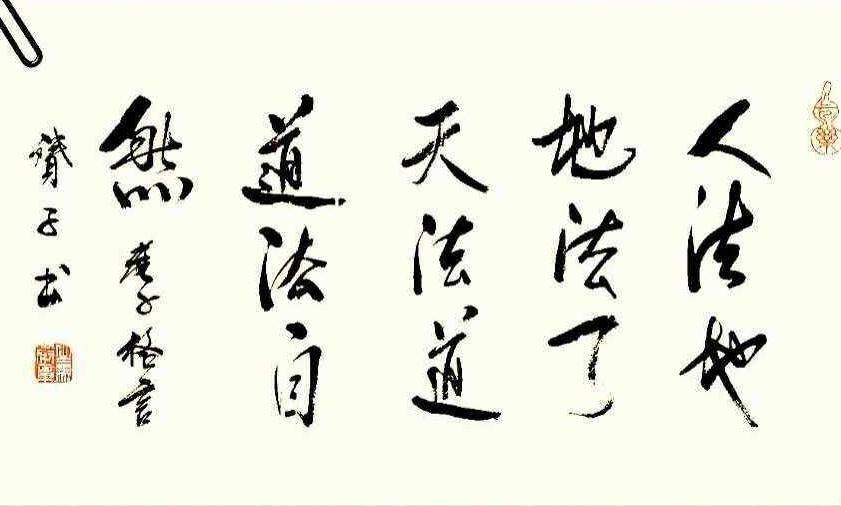 人法地
地法天
天法道
道法自
然 老子格言
子书